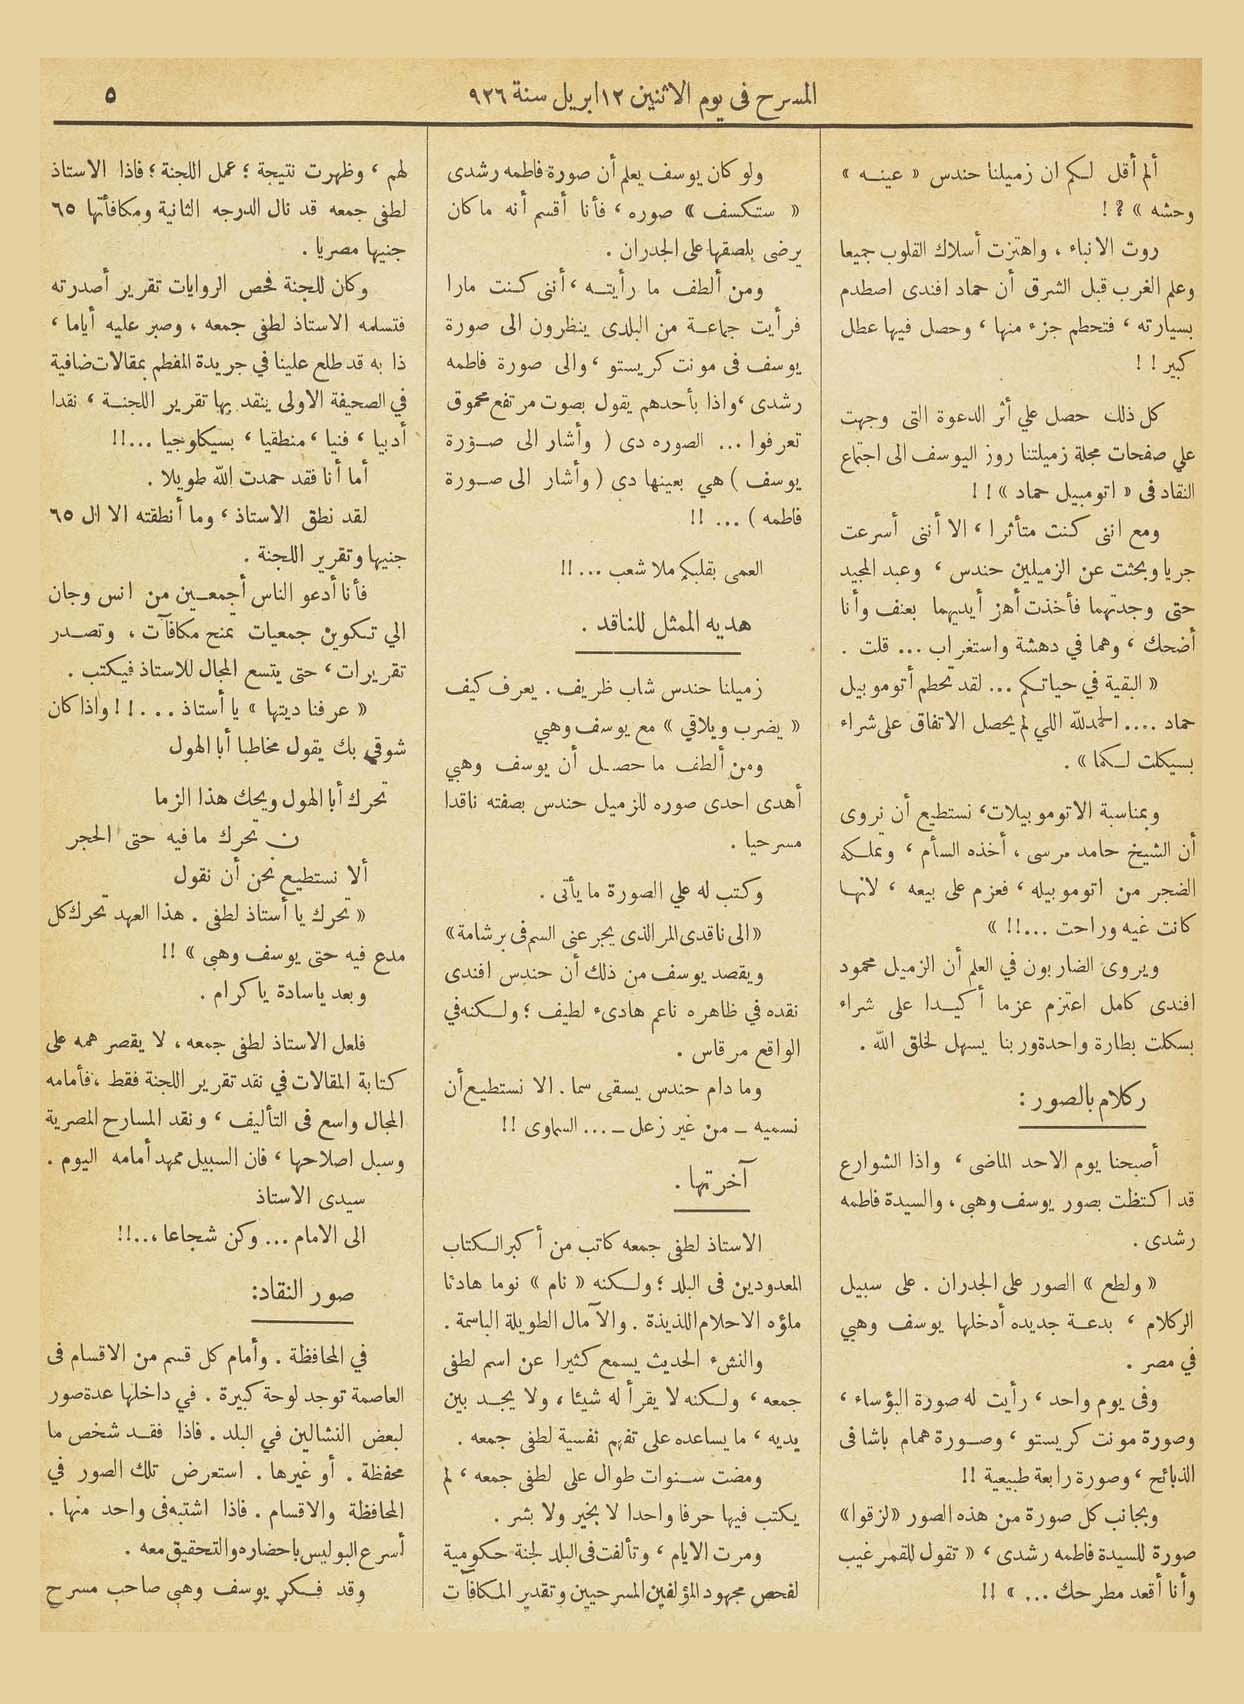 المسرح فى يوم الاثنين ١٢ ابريل سنة ٩٢٦
٥
ألم أقل لكم ان زميلنا حندس « عينه »
وحشه » ؟ !
روت الانباء ، واهتزت أسلاك القلوب جميعا
وعلم الغرب قبل الشرق أن حماد افندى اصطدم
بسيارته ، فتحطم جزء منها ، وحصل فيها عطل
كبير ! !
كل ذلك حصل علي أثر الدعوة التى وجهت
علي صفحات مجلة زميلتنا روز اليوسف الى اجتماع
النقاد فى « اتومبيل حماد » ! !
ومع اننى كنت متأثرا ، الا أننى أسرعت
جريا وبحثت عن الزميلين حندس ، وعبد المجيد
حتى وجدتهما فأخذت أهز أيديهما بعنف وأنا
أضحك ، وهما في دهشة واستغراب ... قلت .
« البقية في حياتكم ... لقد تحطم أتوموبيل
حماد .... الحمدلله اللي لم يحصل الاتفاق على شراء
بسيكلت لكما » .
وبمناسبة الاتوموبيلات ، نستطيع أن نروى
أن الشيخ حامد مرسى ، أخذه السأم ، وتملكه
الضجر من اتوموبيله ، فعزم على بيعه ، لانها
كانت غيه وراحت ...!! »
ويروى الضاربون في العلم أن الزميل محمود
افندى كامل اعتزم عزما أكيدا على شراء
بسكلت بطارة واحدة وربنا يسهل لخلق الله .
ركلام بالصور :
أصبحنا يوم الاحد الماضى ، واذا الشوارع
قد اكتظت بصور يوسف وهبي ، والسيدة فاطمه
رشدى .
« ولطع » الصور على الجدران . على سبيل
الركلام ، بدعة جديده أدخلها يوسف وهبي
في مصر .
وفى يوم واحد ، رأيت له صورة البؤساء ،
وصورة مونت كريستو ، وصورة همام باشا فى
الذبائح ، وصورة رابعة طبيعية !!
وبجانب كل صورة من هذه الصور «لزقوا»
صورة للسيدة فاطمه رشدى ، « تقول للقمر غيب
وأنا أقعد مطرحك ... » !!
ولو كان يوسف يعلم أن صورة فاطمه رشدى
« ستكسف » صوره ، فأنا أقسم أنه ما كان
يرضى بلصقها على الجدران .
ومن ألطف ما رأيته ، أننى كنت مارا
فرأيت جماعة من البلدى ينظرون الى صورة
يوسف فى مونت كريستو ، والى صورة فاطمه
رشدى ، واذا بأحدهم يقول بصوت مرتفع محموق
تعرفوا ... الصوره دى ( وأشار الى صورة
يوسف ) هي بعينها دى ( وأشار الى صورة
فاطمه ) ... !!
العمى بقلبكم ملا شعب ... !!
هديه الممثل للناقد .
زميلنا حندس شاب ظريف . يعرف كيف
« يضرب ويلاقي » مع يوسف وهبي
ومن ألطف ما حصل أن يوسف وهبي
أهدى احدى صوره للزميل حندس بصفته ناقدا
مسرحيا .
وكتب له علي الصورة ما يأتى .
«الى ناقدى المر الذى يجرعنى السم فى برشامة»
ويقصد يوسف من ذلك أن حندس افندى
نقده في ظاهره ناعم هادىء لطيف ؛ ولكنه في
الواقع مر قاس .
وما دام حندس يسقى سما . الا نستطيع أن
نسميه ــ من غير زعل ــ ... السماوى !!
آخرتها .
الاستاذ لطفى جمعه كاتب من أكبر الكتاب
المعدودين فى البلد ؛ ولكنه « نام » نوما هادئا
ماؤه الاحلام اللذيذة . والآمال الطويلة الباسمة .
والنشء الحديث يسمع كثيرا عن اسم لطفى
جمعه ، ولكنه لا يقرأ له شيئا ، ولا يجد بين
يديه ، ما يساعده على تفهم نفسية لطفى جمعه .
ومضت سنوات طوال على لطفى جمعه ، لم
يكتب فيها حرفا واحدا لا بخير ولا بشر .
ومرت الايام ، وتألفت فى البلد لجنة حكومية
لفحص مجهود المؤلفين المسرحيين وتقدير المكافآت
لهم ، وظهرت نتيجة ؛ عمل اللجنة ؛ فاذا الاستاذ
لطفى جمعه قد نال الدرجه الثانية ومكافأتها ٦٥
جنيها مصريا .
وكان للجنة فحص الروايات تقرير أصدرته
فتسلمه الاستاذ لطفى جمعه ، وصبر عليه أياما ،
ذا به قد طلع علينا في جريدة المقطم بمقالات ضافية
في الصحيفة الاولى ينقد بها تقرير اللجنة ، نقدا
أدبيا ، فنيا ، منطقيا ، بسيكاوجيا ...!!
أما أنا فقد حمدت الله طويلا .
لقد نطق الاستاذ ، وما أنطقته الا ال ٦٥
جنيها وتقرير اللجنة .
فأنا أدعو الناس أجمعين من انس وجان
الي تكوين جمعيات تمنح مكافآت ، وتصدر
تقريرات ، حتى يتسع المجال للاستاذ فيكتب .
« عرفنا ديتها » يا أستاذ ...!! واذا كان
شوقي بك يقول مخاطبا أبا الهول
تحرك أبا الهول ويحك هذا الزما
ن تحرك ما فيه حتى الحجر
ألا نستطيع نحن أن نقول
« تحرك يا أستاذ لطفى . هذا العهد تحرك كل
مدع فيه حتى يوسف وهبى » !!
وبعد ياسادة يا كرام .
فلعل الاستاذ لطفى جمعه ، لا يقصر همه على
كتابة المقالات في نقد تقرير اللجنة فقط ، فأمامه
المجال واسع فى التأليف ، ونقد المسارح المصرية
وسبل اصلاحها ، فان السبيل ممهد أمامه اليوم .
سيدى الاستاذ
الى الامام ... وكن شجاعا ،..!!
صور النقاد:
في المحافظة . وأمام كل قسم من الاقسام فى
العاصمة توجد لوحة كبيرة . في داخلها عدة صور
لبعض النشالين في البلد . فاذا فقد شخص ما
محفظة . أو غيرها . استعرض تلك الصور في
المحافظة والاقسام . فاذا اشتبه فى واحد منها .
أسرع البوليس باحضاره والتحقيق معه .
وقد فكر يوسف وهبى صاحب مسرح